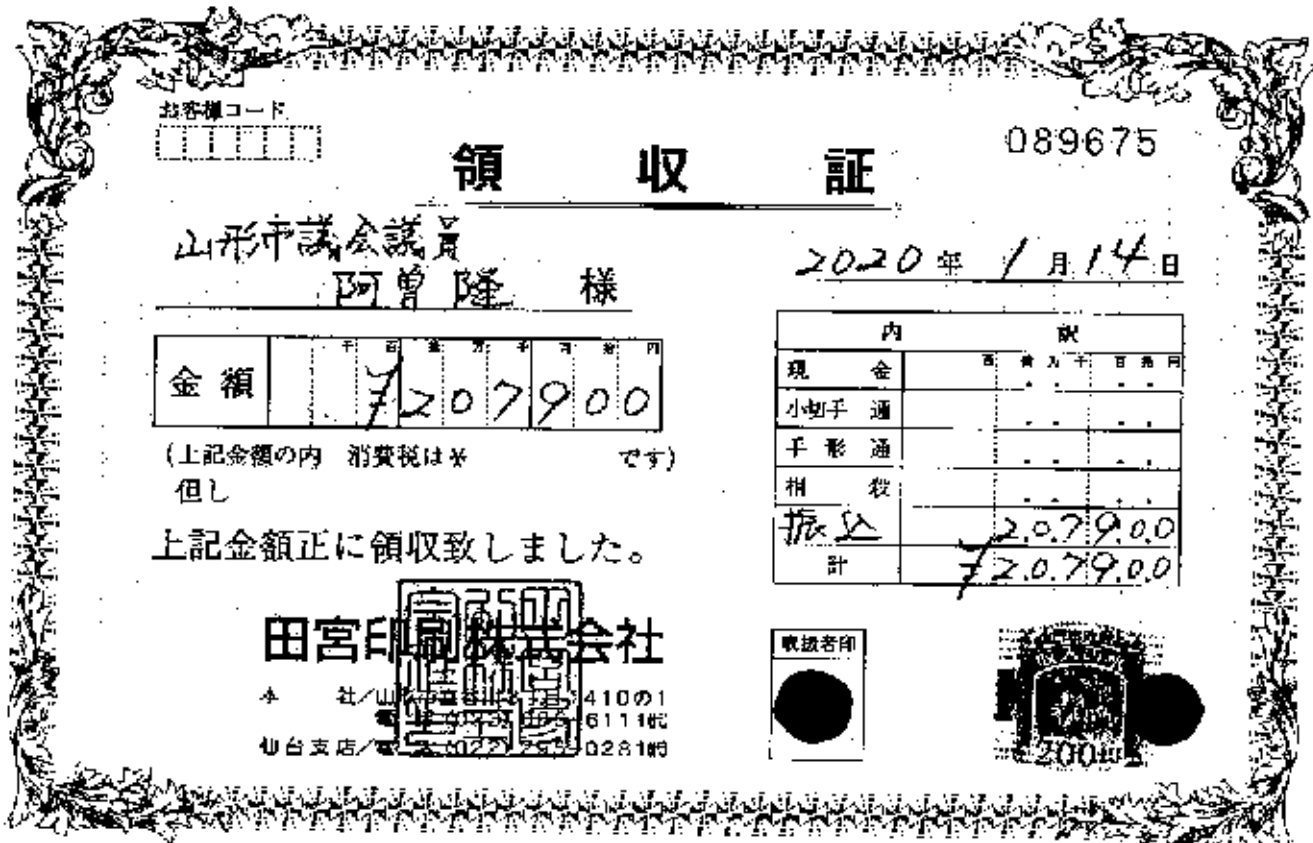 お客様コード
089675
領収証
山形市議会議員
阿曽隆 様
2020年1月14日
金額 千百拾万千百拾円
¥207900
(上記金額の内 消費税は¥ です)
但し
上記金額正に領収致しました。
内訳
現金 百拾万千百拾円
小切手 通
手形 通
相殺
振込 207900
計 ¥207900
田宮印刷株式会社
本社/山形市 410の1
6111㈹
仙台支店/ 0281㈹
取扱者印
200円